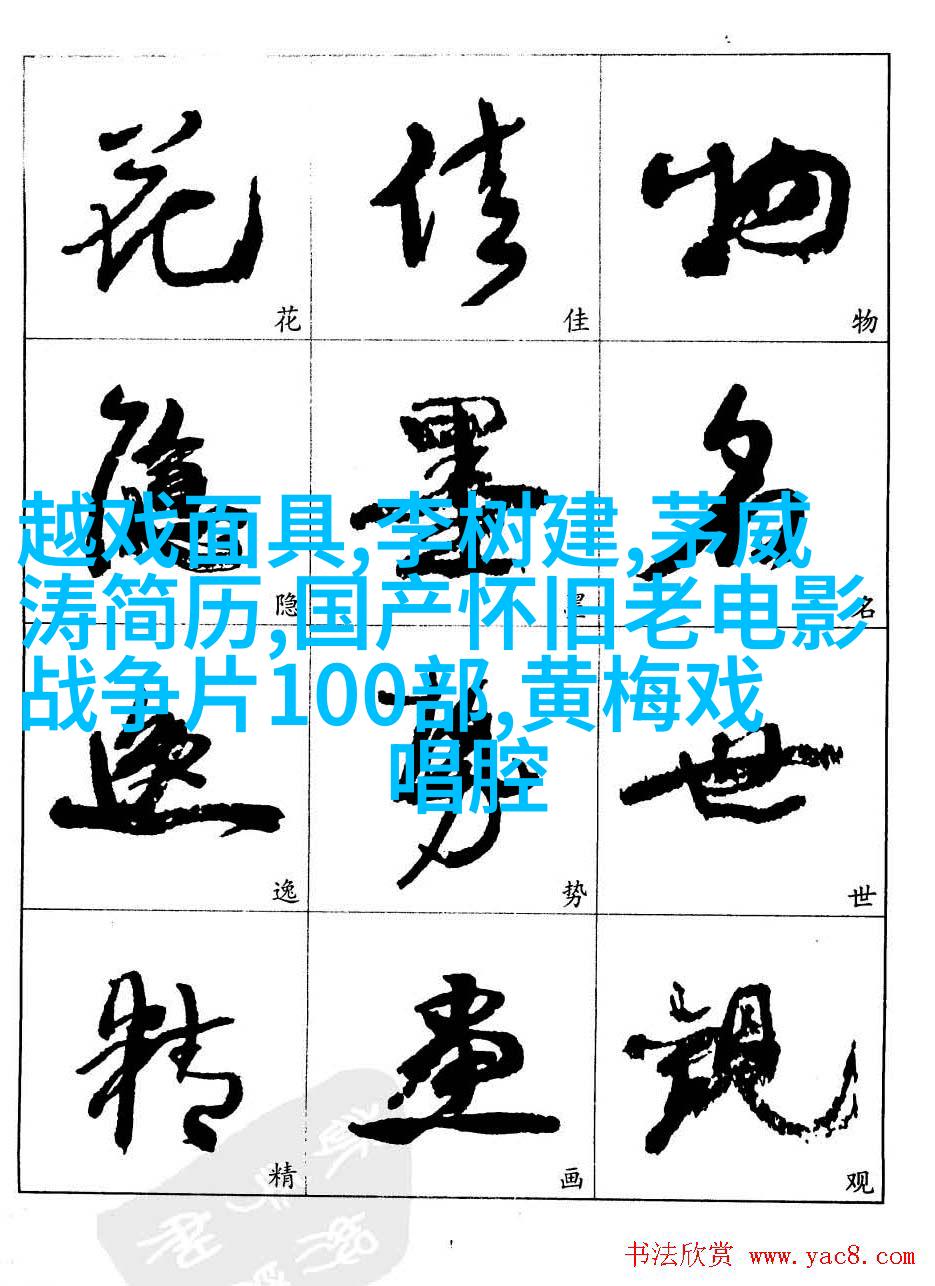 花 佳 物
花 佳 物
隐 墨 名
隐 墨 名
越戏面具,李树建,茅威
涛简历,国产怀旧老电影
战争片100部,黄梅戏
唱腔
逸 势 世
逸 势 世
精 画 观
精 画 观
书法欣赏 www.yac8.com